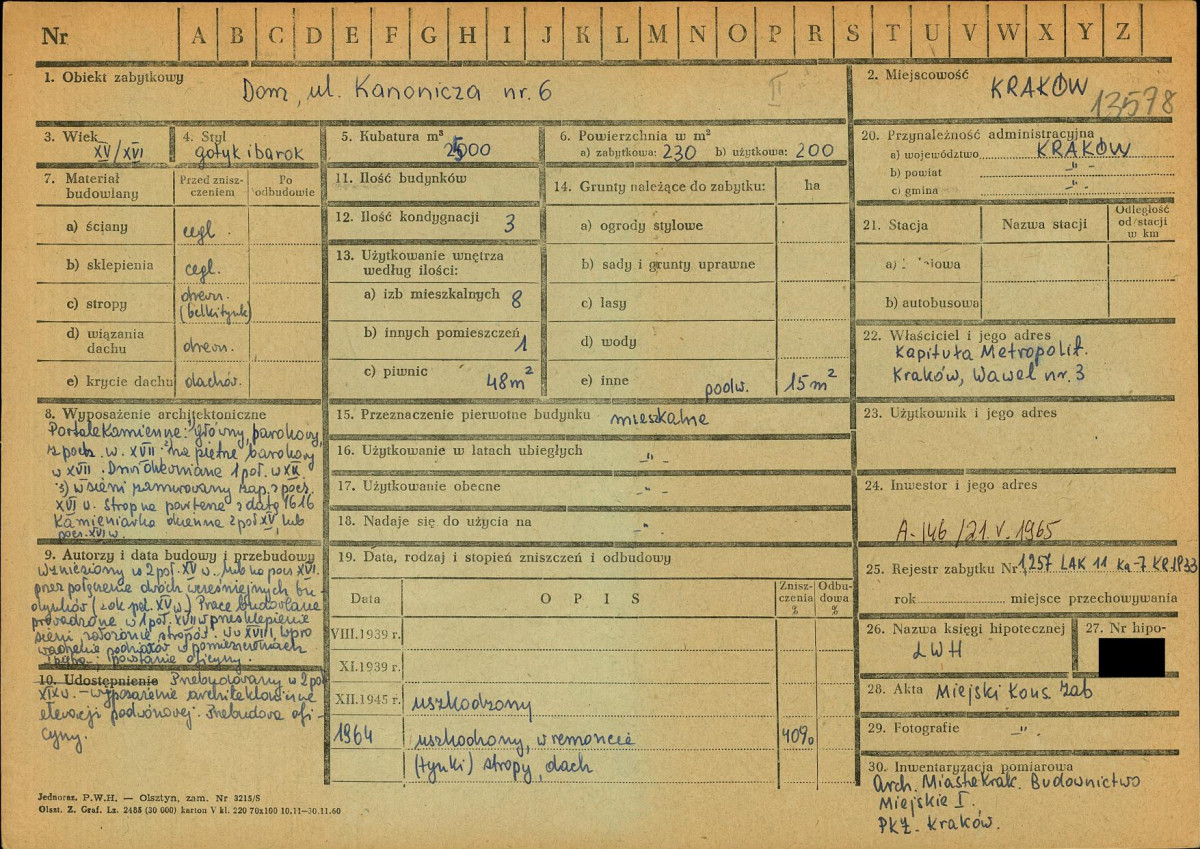 Nr A B C D E F G H I J K L M N O P R S T U V W X Y Z
1. Obiekt zabytkowy
Dom, ul. Kanonicza nr. 6
II
2. Miejscowość
KRAKÓW
13578
3. Wiek
XV/XVI
4. Styl
gotyk i barok
5. Kubatura m³
2500
6. Powierzchnia w m²
a) zabytkowa: 230 b) użytkowa: 200
20. Przynależność administracyjna
a) województwo KRAKÓW
b) powiat -"-
c) gmina -"-
7. Materiał budowlany
Przed zniszczeniem
Po odbudowie
a) ściany cegl.
b) sklepienia cegl.
c) stropy drewn.
(belki tynk)
d) wiązania dachu drewn.
e) krycie dachu dachów.
11. Ilość budynków
12. Ilość kondygnacji 3
13. Użytkowanie wnętrza
według ilości:
a) izb mieszkalnych 8
b) innych pomieszczeń 1
c) piwnic 48 m²
14. Grunty należące do zabytku: ha
a) ogrody stylowe
b) sady i grunty uprawne
c) lasy
d) wody
e) inne podw. 15 m²
21. Stacja
Nazwa stacji
Odległość
od stacji
w km
a)
b) autobusowa
22. Właściciel i jego adres
Kapituła Metropolit.
Kraków, Wawel nr. 3
8. Wyposażenie architektoniczne
Portale kamienne: główny, barokowy,
z pocz. w. XVII. na piętrze barokowy
w XVII. Drzwi drewniane 1 poł. w XIX
3) w sieni zamurowany zap. z pocz.
XVI w. Strop na parterze z datą 1616
Kamieniarka okienna 2 poł XV, lub
pocz. XVI w.
15. Przeznaczenie pierwotne budynku mieszkalne
16. Użytkowanie w latach ubiegłych -"-
17. Użytkowanie obecne -"-
18. Nadaje się do użycia na -"-
23. Użytkownik i jego adres
24. Inwestor i jego adres
A-146/21.V.1965
9. Autorzy i data budowy i przebudowy
Wzniesiony w 2 poł. XV w. lub na pocz XVI.
przez połączenie dwóch wcześniejszych bu-
dynków (zok. poł. XV w.) Prace budowlane
prowadzone w 1 poł. XVII w przesklepienie
sieni, założenie stropów. w XVIII, wpro
wadzenie podziałów w pomieszczeniach
powstanie oficyny.
10. Udostępnienie Przebudowany w 2 poł
XIX w. - wyposażenie architektoniczne
elewacji podwórzowej. Przebudowa ofi-
cyny.
19. Data, rodzaj i stopień zniszczeń i odbudowy
Data
OPIS
Zniszczenia %
Odbudowa %
VIII.1939 r.
XI.1939 r.
XII.1945 r. uszkodzony
1964 uszkodzony, w remoncie 40%
(tynki) stropy, dach
25. Rejestr zabytku Nr 1,257 LAK 11 Ka-7 KR.1933
rok miejsce przechowywania
26. Nazwa księgi hipotecznej
LWH
27. Nr hipo-
28. Akta Miejski Kons. Zab
29. Fotografie -"-
30. Inwentaryzacja pomiarowa
Arch. Miasta Krak. Budownictwo
Miejskie I.
PKZ. Kraków.
Jednoraz. P.W.H. — Olsztyn, zam. Nr 3215/S
Olszt. Z. Graf. Lz. 2485 (30 000) karton V kl. 220 70x100 10.11—30.11.60